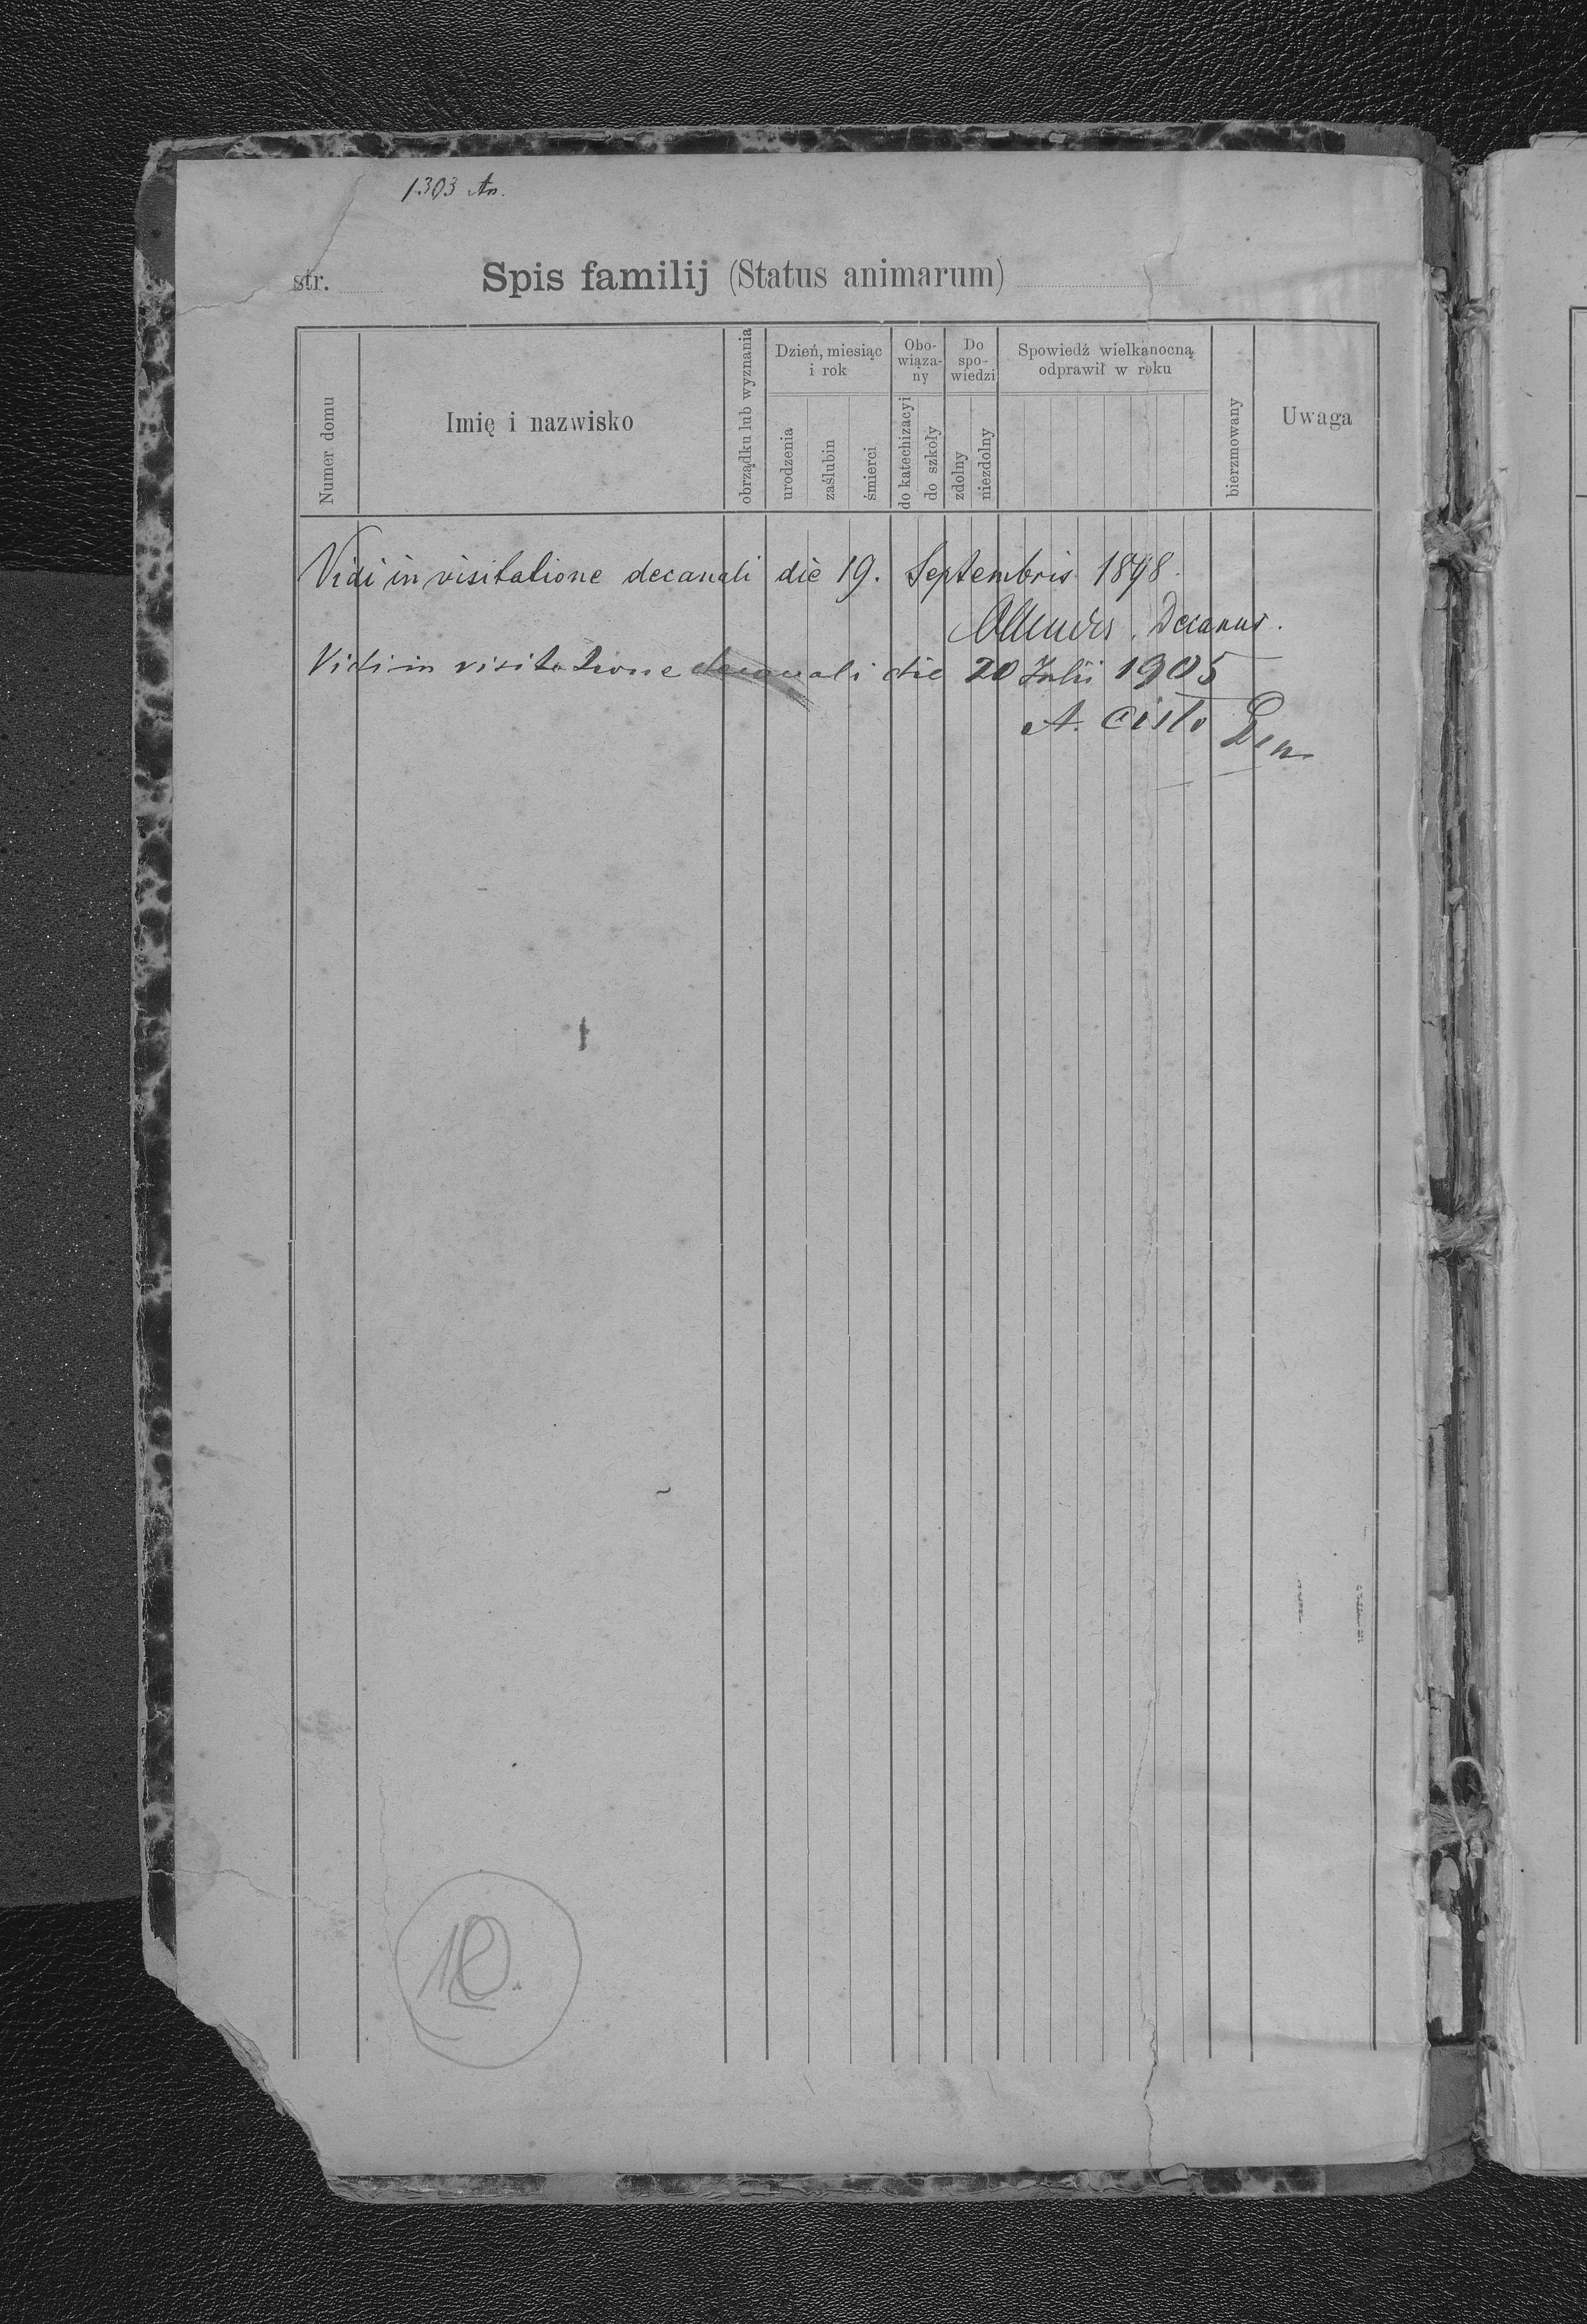 1303 An.
str.
Spis familij (Status animarum)
Numer domu
Imię i nazwisko
obrządku lub wyznania
Dzień, miesiąc
i rok
urodzenia
zaślubin
śmierci
Obo-
wiąza-
ny
do katechizacyi
do szkoły
Do
spo-
wiedzi
zdolny
niezdolny
Spowiedź wielkanocną
odprawił w roku
bierzmowany
Uwaga
Vidi in visitatione decanali die 19. Septembris 1898.
Decanus.
Vidi in visitatione decanali die 20 Julii 1905
A. Cisło Den
10.